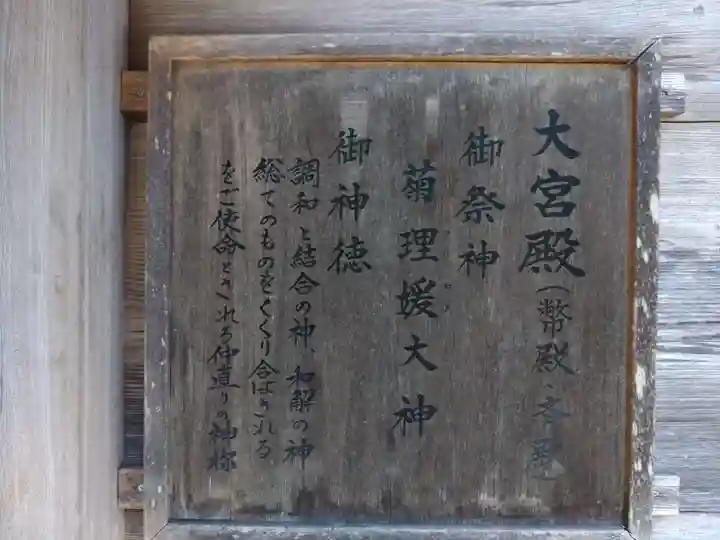 大宮殿(幣殿・本殿)
御祭神
菊理媛大神
御神徳
調和と結合の神、和解の神
総てのものをくくり合はされる
をご使命とされる仲直りの神様